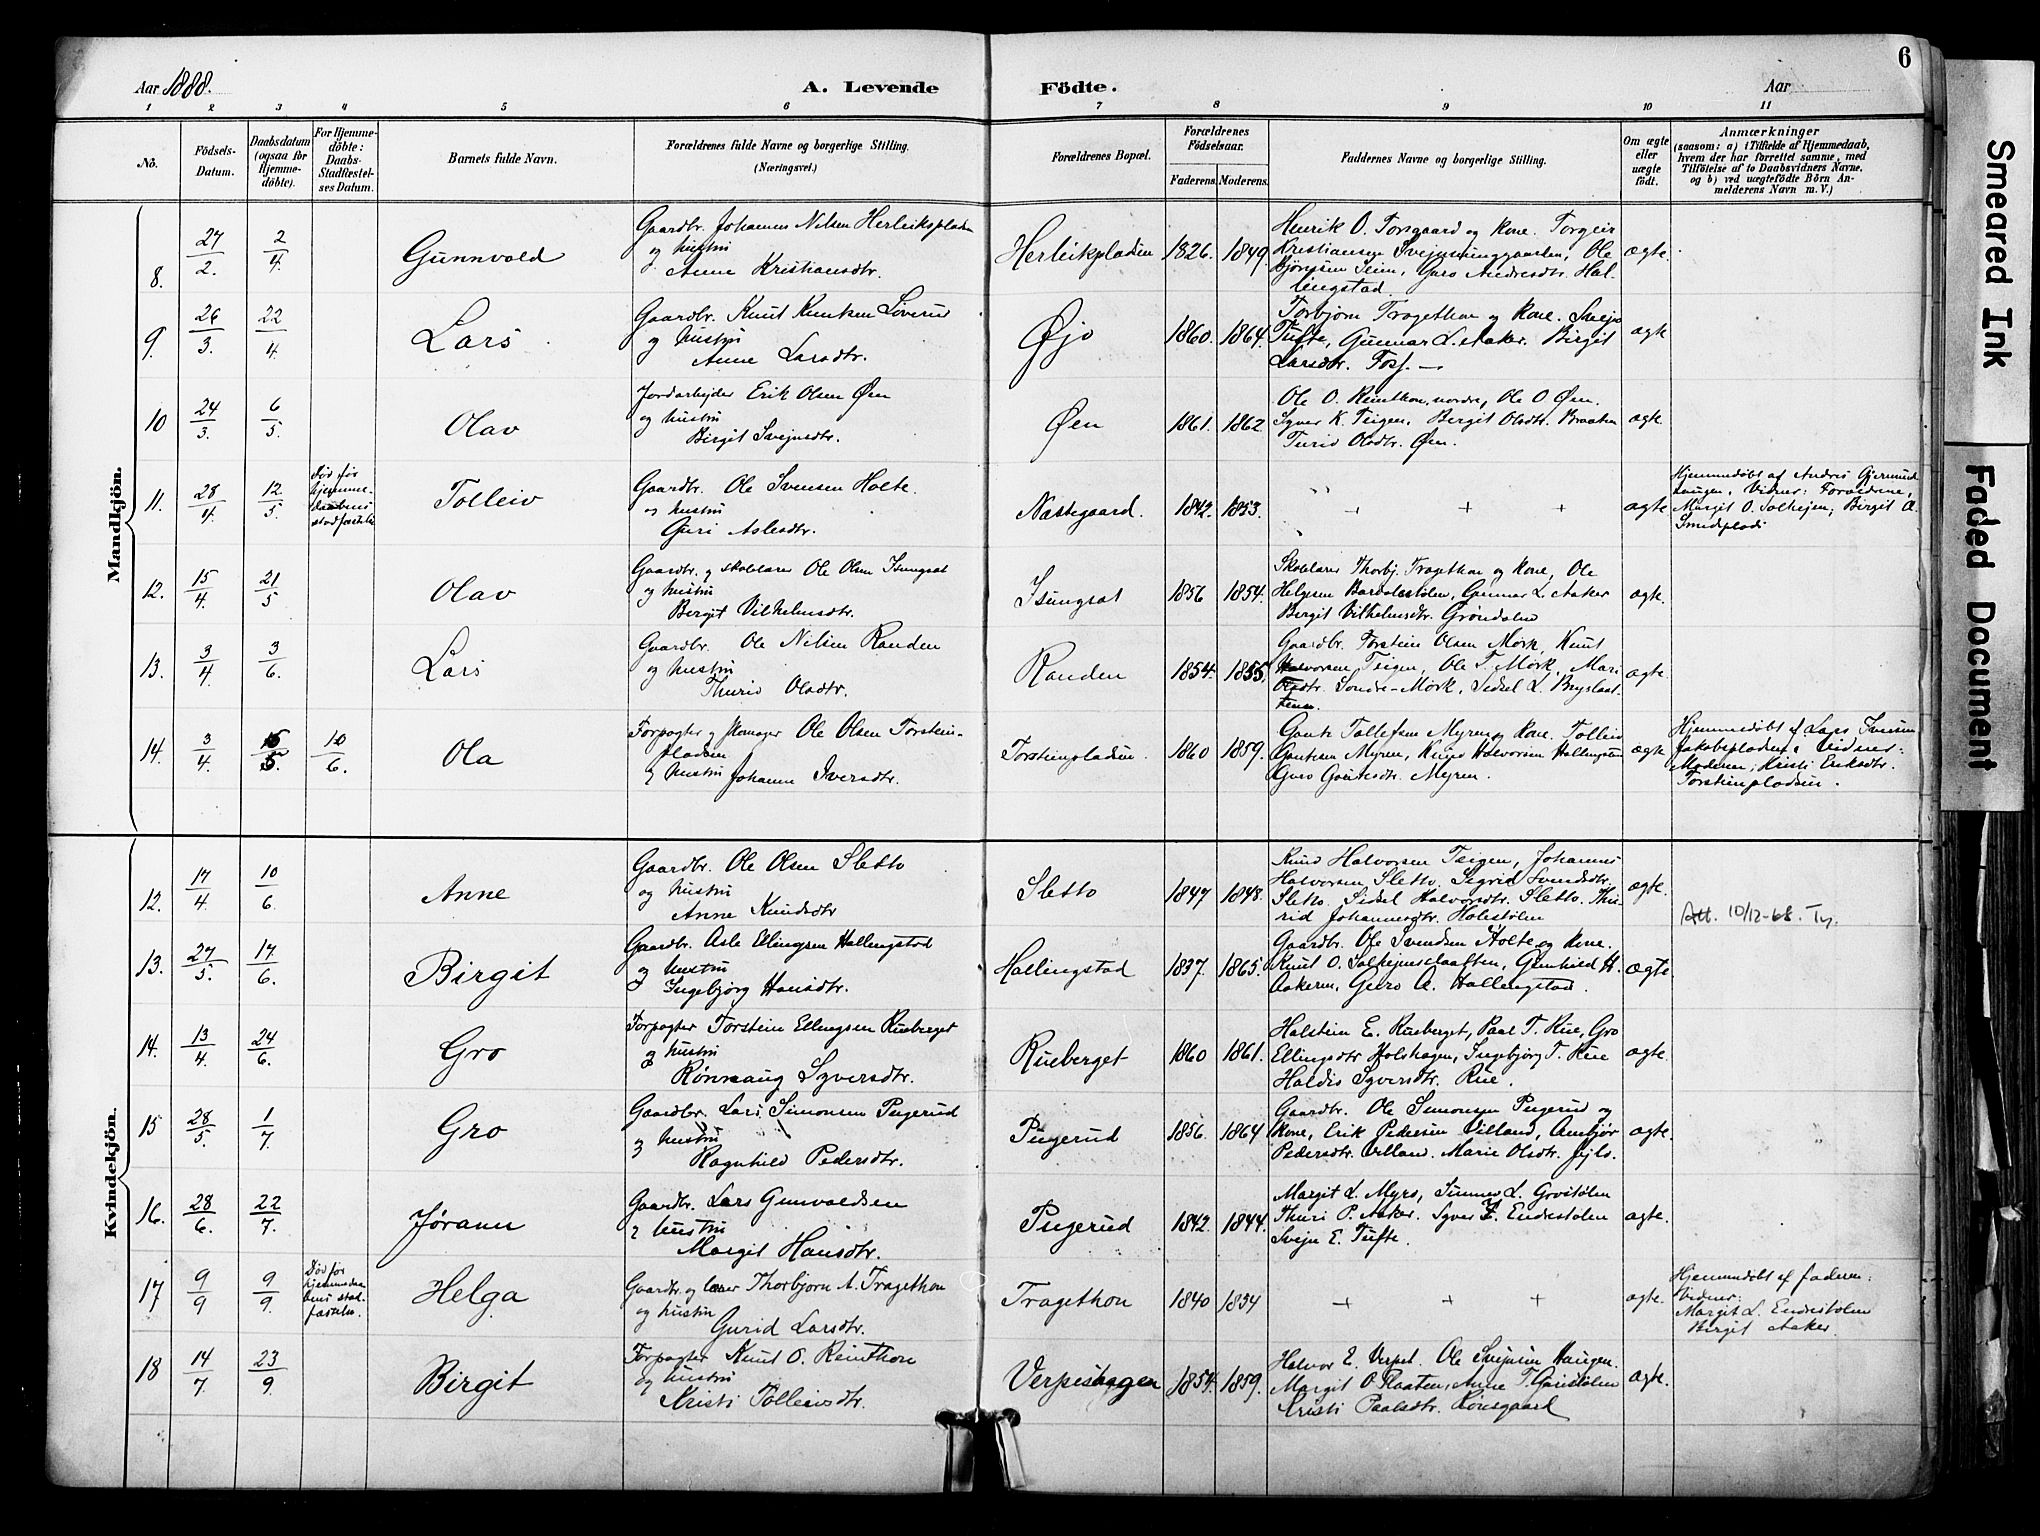 6
Aar 1888. A. Levende Födte. Aar
1 2 3 4 5 6 7 8 9 10 11
No. Födsels-Datum. Daabsdatum (ogsaa for Hjemme-döbte). For Hjemme-döbte: Daabs-Stadfæstel-ses Datum. Barnets fulde Navn. Forældrenes fulde Navne og borgerlige Stilling. (Næringsvei.) Forældrenes Bopæl. Forældrenes Födselsaar. Faderens. Moderens. Faddernes Navne og borgerlige Stilling. Om ægte eller uægte födt. Anmærkninger (saasom: a) i Tilfælde af Hjemmedaab, hvem der har forrettet samme, med Tilföielse af to Daabsvidners Navne, og b) ved uægtefödte Börn An-melderens Navn m. V.)
Mandkjön.
8. 27/2. 2/4. Gunnvald
Gaardbr. Johannes Nilsen Herleiksplađen
og hustru
Anne Kristiansdtr.
Herleikpladen 1826. 1849.
Henrik O. Torsgaard og Kone. Torgeir
Kristiansen Svejnhinggaarden, Ole
Björnsen Seim, Guro Andresdtr. Hal-
lingstad.
ægte.
9. 26/3. 22/4. Lars
Gaardbr. Knut Knutsen Löverud
og hustru
Anne Larsdtr.
Øjo 1860. 1864.
Torbjörn Tragethon og Kone. Svejn
Tufte, Gunnar L. Aaker. Birgit
Larsdtr. Foss.
ægte
10 24/3. 6/5. Olav
Jordarbejder Erik Olsen Øen
og hustru
Birgit Svejnsdtr.
Øen 1861. 1862.
Ole O. Reinthon nordre, Ole O. Øen.
Syver K. Teigen. Birgit Olsdtr. Braaten
Turid Olsdtr. Øen.
ægte.
11. 28/4 12/5. Død før hjemme-daabens stadfæstelse Tolleiv
Gaardbr. Ole Svensen Holte.
og hustru
Guri Aslesdtr.
Næstegaard. 1842. 1853.
+ + +
ægte
Hjemmedøbt af Andris Gjermund
haugen. Vidner: Forældrene,
Margit O. Solhejm, Birgit A.
Smedplads
12. 15/4. 21/5. Olav
Gaardbr. og skolelærer Ole Olsen Isungsæt
og hustru
Birgit Vilhelmsdtr.
Isungsæt 1856 1854.
Skolelærer Thorbj. Tragethon og Kone, Ole
Helgesen Bardalestölen, Gunnar L. Aaker
Birgit Vilhelmsdtr. Gröndalen
ægte.
13. 3/4. 3/6. Lars
Gaardbr. Ole Nilsen Randen
og hustru
Thurid Olsdtr.
Randen 1854. 1855.
Gaardbr. Torstein Olsen Mørk, Knut
Halvorsen Teigen, Ole T. Mørk, Mari
Olsdtr. Søndre-Mørk, Sidsel L. Bryslaat
14. 3/4. 5. 10/6. Ola
Forpagter og skomager Ole Olsen Torstein-
pladsen
og hustru Johanne Iversdtr.
Torsteinpladsen. 1860 1859.
Gaute Tollefsen Myren og Kone. Tolleiv
Gautesen Myren, Halvorsen Hallingstad
Guro Gautesdtr. Myren.
ægte
Hjemmedøbt af Lars Iversen
Jakobspladsen. Vidner:
Moderen, Kristi Eriksdtr.
Torsteinpladsen.
Kvindekjön.
12. 17/4. 10/6. Anne
Gaardbr. Ole Olsen Sletto
og hustru
Anne Knudsdtr
Sletto 1847 1848.
Knud Halvorsen Teigen, Johannes
Halvorsen Sletto. Sigrid Svendsdtr.
Sletto. Sidsel Halvorsdtr. Sletto. Thu-
rid Johannesdtr. Holestölen
ægte.
Att. 10/12-68. Ty.
13. 27/5. 17/6. Birgit
Gaardbr. Asle Ellingsen Hallingstad
og hustru
Ingebjörg Hansdtr.
Hallingstad 1837. 1865.
Gaardbr. Ole Svendsen Holte og Kone.
Knut O. Solhejmslaatten, Gunhild H.
Aakeren, Guro A. Hallingstad.
ægte
14. 13/4. 24/6. Gro
Forpagter Torstein Ellingsen Rueberget
og hustru
Rønnaug Syversdtr.
Rueberget 1860 1861.
Halstein E. Rueberget, Paal T. Rue, Gro
Ellingsdtr Holshagen, Ingebjörg T. Rue
Haldis Syversdtr. Rue.
ægte.
15 28/5. 1/7. Gro
Gaardbr. Lars Simonsen Pugerud
og hustru
Ragnhild Pedersdtr.
Pugerud 1856. 1864
Gaardbr. Ole Simonsen Pugerud og
Kone, Erik Pedersen Villand, Ambjör
Pedersdtr. Villand. Marie Olsdtr. Jyls.
ægte.
16. 28/6. 22/7. Jørann
Gaardbr. Lars Gunvaldsen
og hustru
Margit Hansdtr.
Pugerud 1842. 1844.
Margit L. Myro, Gunnar L. Grøstölen
Thuri P. Aaker. Syver L. Endrestölen
Svejn E. Tufte.
ægte.
17 9/9 9/9. Død før hjemmedaa-bens stad-fæstelse. Helga
Gaardbr. og lærer Thorbjorn A. Tragethon
og hustru
Gurid Larsdtr.
Tragethon 1840 1834
+ + +
ægte.
Hjemmedøbt af faderen.
Vidner:
Margit L. Endrestölen
Birgit Aaker.
18 14/7. 23/9. Birgit
Forpagter Knut O. Reinthon
og hustru
Kristi Tolleivsdtr.
Verpeshagen 1854. 1859.
Halvor E. Verpet. Ole Svejnsen Haugen.
Margit O. Raaten, Anne T. Garistölen
Kristi Paalsdtr. Rønsgaard
ægte.
Smeared Ink
Faded Document